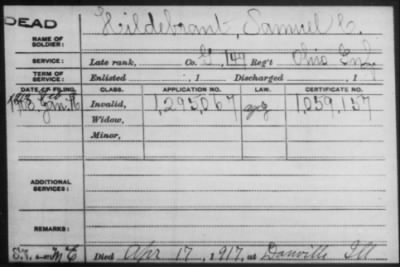 DEAD
NAME OF SOLDIER: Hildebrant, Samuel C.
SERVICE: Late rank, Co. G, 144 Reg't Ohio Inf
TERM OF SERVICE: Enlisted , 1 Discharged , 1
DATE OF FILING. CLASS. APPLICATION NO. LAW. CERTIFICATE NO.
Invalid, 1,295,067 1,059,157
Widow,
Minor,
ADDITIONAL SERVICES:
REMARKS:
Died Apr 17, 1917, at Danville Ill